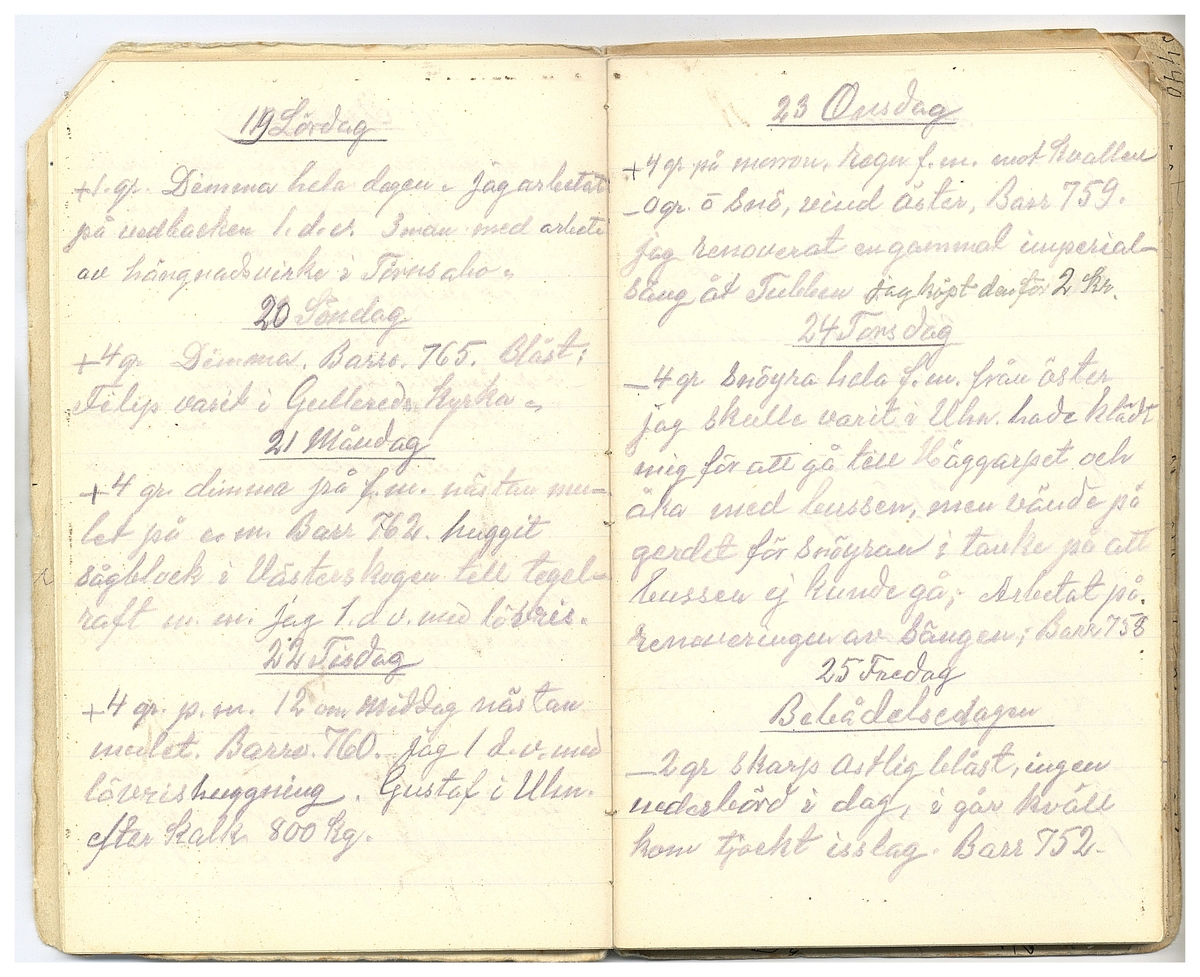 19 Lördag
+1. gr. Dimma hela dagen. jag arbetat
på vedbacken 1. d.v. 3 man med arbete
av hängnadsvirke i Törnsaho.
20 Söndag
+4 gr. Dimma. Barro. 765. Blåst;
Filip varit i Gullereds Kyrka.
21 Måndag
+4 gr. dimma på f.m. nästan mu-
let på e.m. Barr 762. huggit
sågblock i Västerskogen till tegel-
raft m.m. jag 1. d.v. med lövris.
22 Tisdag
+4 gr. p.m. 12 om middag nästan
mulet. Barro. 760. jag 1 d.v. med
lövrishuggning. Gustaf i Uhn.
efter Kalk 800 Kg.
23 Onsdag
+4 gr. på morron. Regn f.m. mot kvällen
-0 gr. o Snö, vind öster, Barr 759.
jag renoverat en gammal imperial-
säng åt Tubben jag köpt den för 2 Kr.
24 Torsdag
-4 gr Snöyra hela f.m. från öster
jag skulle varit i Uhn. hade klädt
mig för att gå till Häggarpet och
åka med bussen, men vände på
gerdet för Snöyran i tanke på att
bussen ej kunde gå; Arbetat på
renoveringen av Sängen; Barr 758
25 Fredag
Bebådelsedagen
-2 gr skarp Ostlig blåst, ingen
nederbörd i dag, i går kväll
kom tjockt isslag. Barr 752.